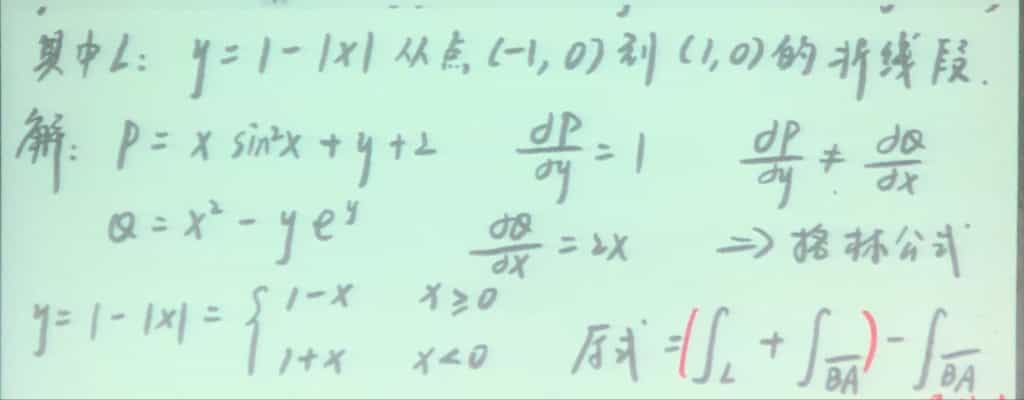 其中L: y=1-|x| 从点(-1,0)到(1,0)的折线段.
解: P = x sin²x + y + 2 ∂P/∂y = 1 ∂P/∂y ≠ ∂Q/∂x
Q = x² - y e^y ∂Q/∂x = 2x ⇒ 格林公式
y = 1-|x| = { 1-x x≥0
1+x x<0 原式 = (∫_L + ∫_{\overline{BA}}) - ∫_{\overline{BA}}